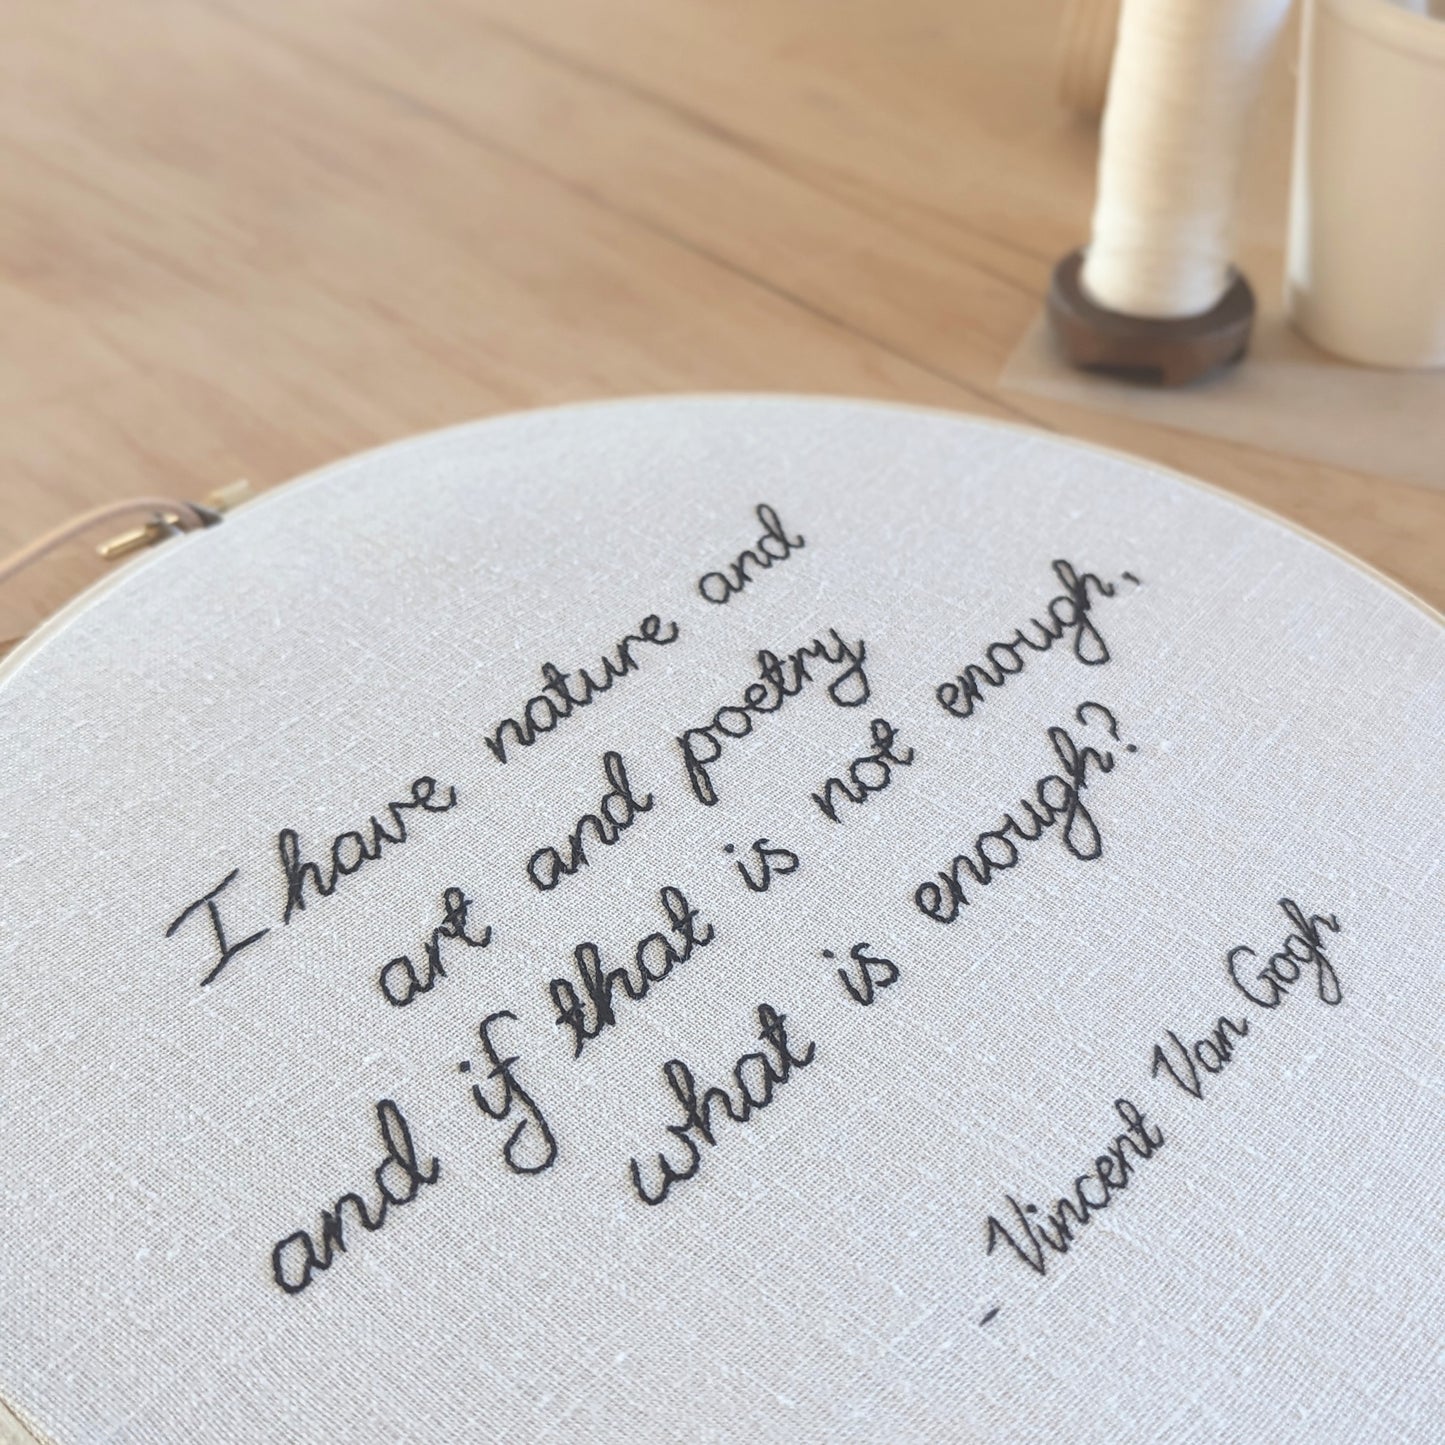 I have nature and
art and poetry
and if that is not enough,
what is enough?
- Vincent Van Gogh